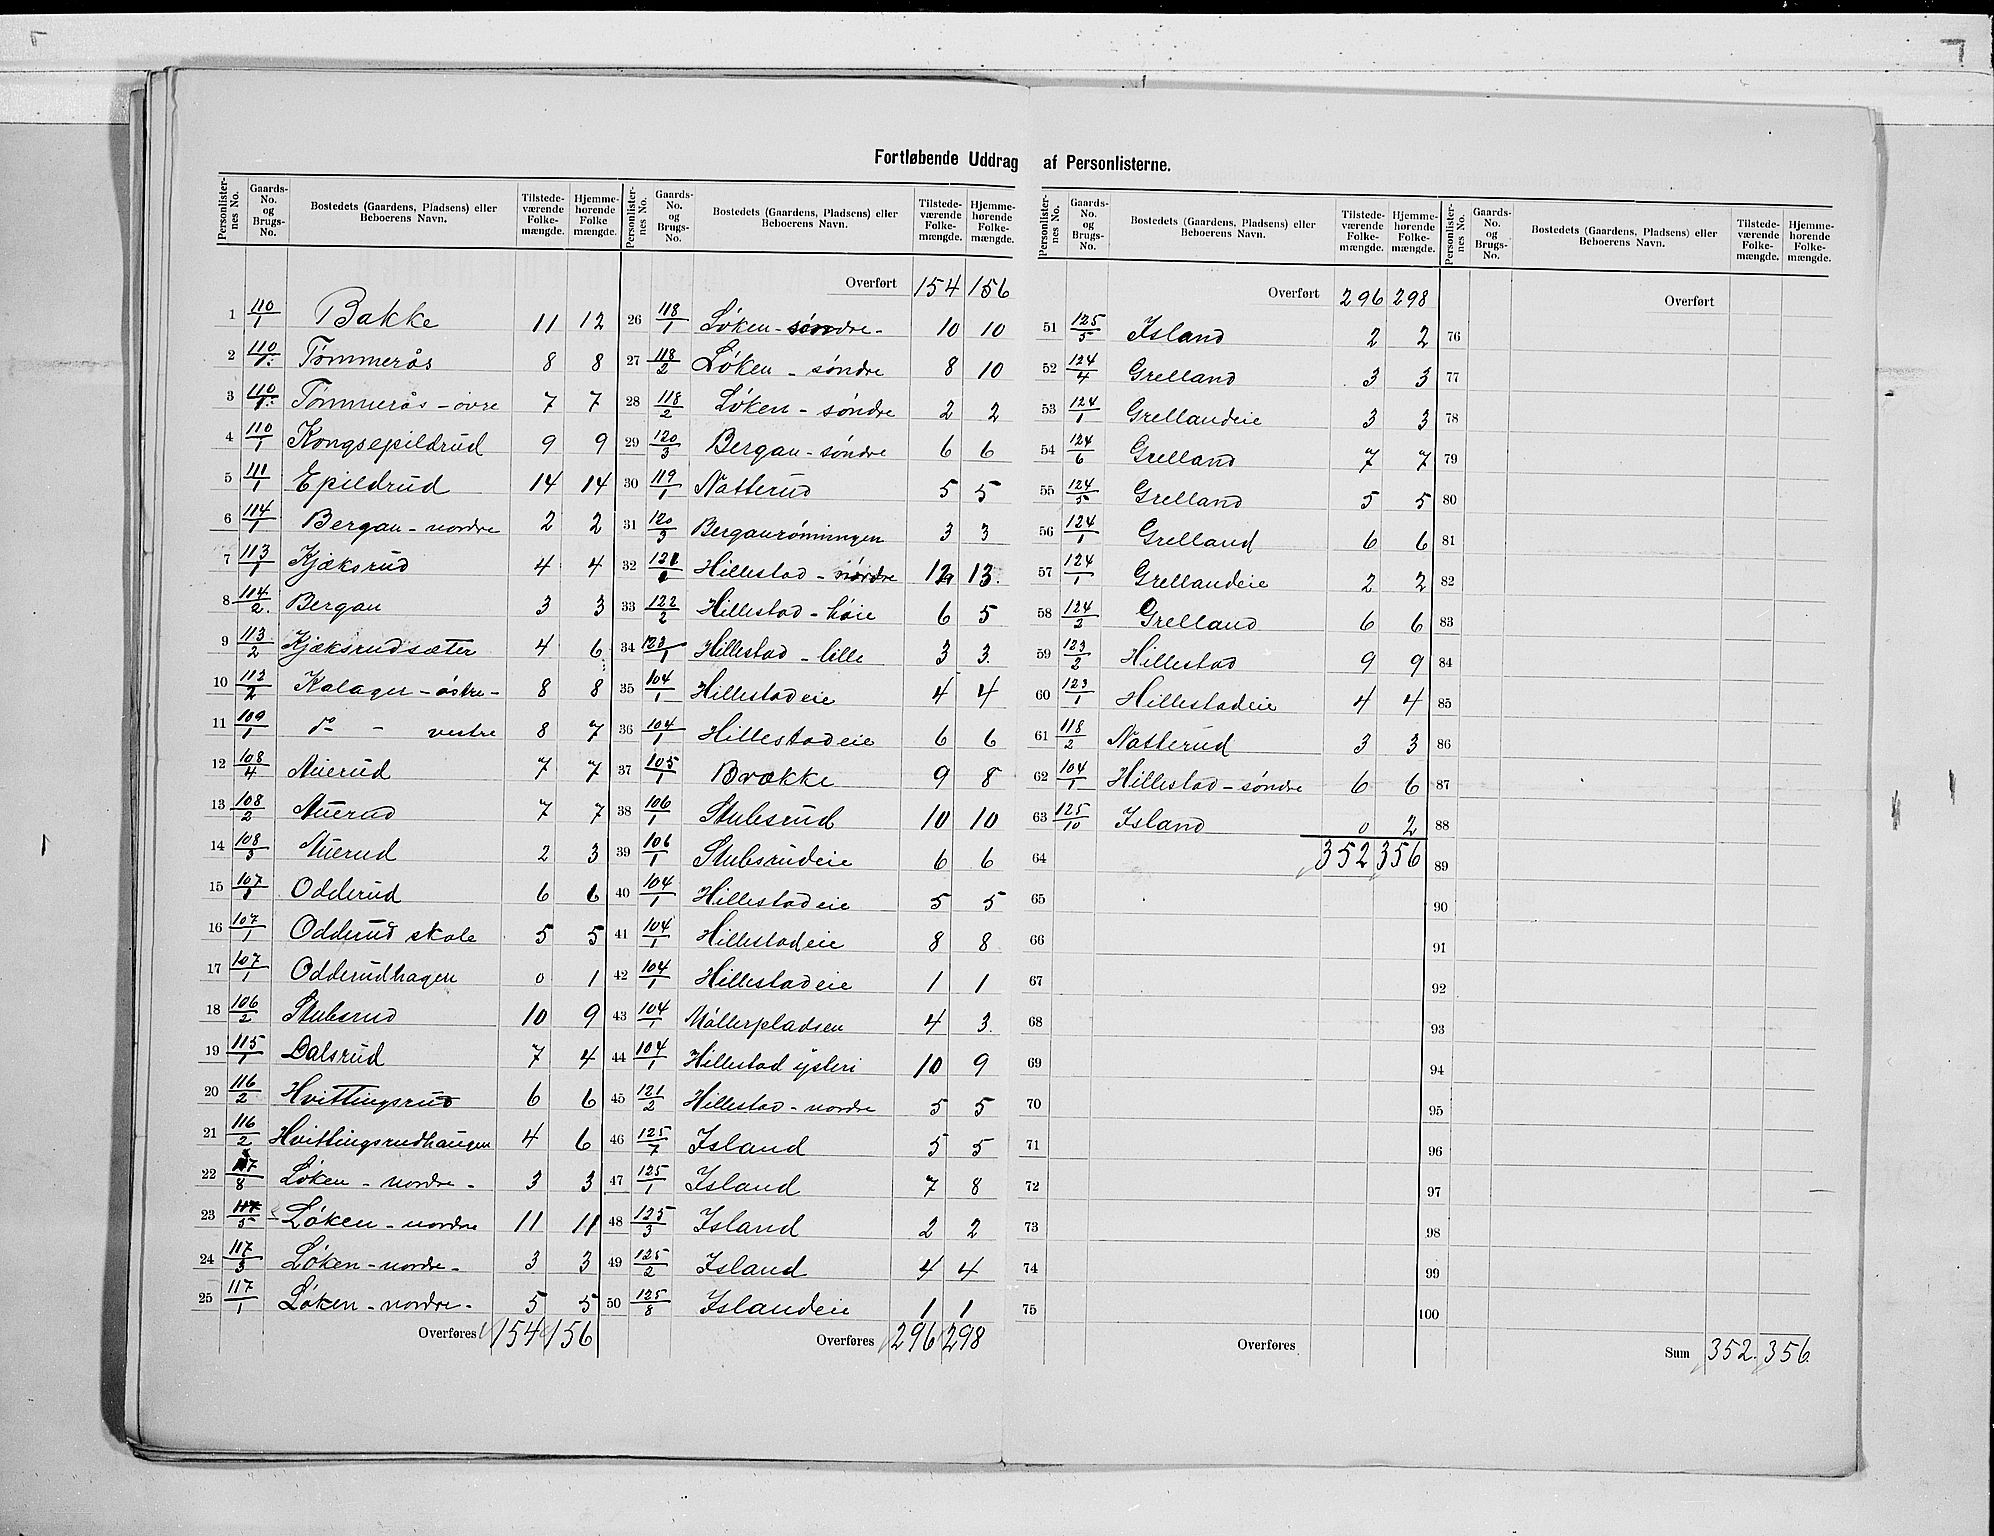 Fortløbende Uddrag af Personlisterne.
Personlister-nes No. | Gaards-No. og Brugs-No. | Bostedets (Gaardens, Pladsens) eller Beboerens Navn. | Tilstede-værende Folke-mængde. | Hjemme-hørende Folke mængde.
1 110/1 Bakke 11 12
2 110/1 Tømmerås 8 8
3 110/1 Tømmerås - øvre 7 7
4 110/1 Kongsepildrud 9 9
5 111/1 Epildrud 14 14
6 114/1 Bergan - nordre 2 2
7 113/1 Kjæksrud 4 4
8 114/2 Bergan 3 3
9 113/2 Kjæksrudsæter 4 6
10 112/2 Kalager - østre - 8 8
11 109/1 do - vestre 8 7
12 108/4 Auerud 7 7
13 108/2 Auerud 7 7
14 108/3 Auerud 2 3
15 107/1 Odderud 6 6
16 107/1 Odderud skole 5 5
17 107/1 Odderudhagen 0 1
18 106/2 Stubsrud 10 9
19 115/1 Dalsrud 7 4
20 116/2 Hvittingsrud 6 6
21 116/2 Hvittingsrudhaugen 4 6
22 117/8 Løken - nordre - 3 3
23 117/5 Løken - nordre 11 11
24 117/3 Løken - nordre - 3 3
25 117/1 Løken - nordre - 5 5
Overføres 154 156
Personlister-nes No. | Gaards-No. og Brugs-No. | Bostedets (Gaardens, Pladsens) eller Beboerens Navn. | Tilstede-værende Folke-mængde. | Hjemme-hørende Folke-mængde.
Overført 154 156
26 118/1 Løken - søndre - 10 10
27 118/2 Løken - søndre 8 10
28 118/2 Løken - søndre 2 2
29 120/3 Bergan - søndre 6 6
30 119/1 Natterud 5 5
31 120/3 Berganrønningen 3 3
32 121/1 Hillestad - nordre 12 13
33 122/2 Hillestad - høie 6 5
34 123/1 Hillestad - lille 3 3
35 104/1 Hillestadeie 4 4
36 104/1 Hillestadeie 6 6
37 105/1 Brække 9 8
38 106/1 Stubsrud 10 10
39 106/1 Stubsrudeie 6 6
40 104/1 Hillestadeie 5 5
41 104/1 Hillestadeie 8 8
42 104/1 Hillestadeie 1 1
43 104/1 Møllerpladsen 4 3
44 104/1 Hillestad ysteri 10 9
45 121/2 Hillestad - nordre 5 5
46 125/7 Island 5 5
47 125/1 Island 7 8
48 125/3 Island 2 2
49 125/2 Island 4 4
50 125/8 Islandeie 1 1
Overføres 296 298
Personlister-nes No. | Gaards-No. og Brugs-No. | Bostedets (Gaardens, Pladsens) eller Beboerens Navn. | Tilstede-værende Folke-mængde. | Hjemme-hørende Folke-mængde.
Overført 296 298
51 125/5 Island 2 2
52 124/4 Grelland 3 3
53 124/1 Grellandeie 3 3
54 124/6 Grelland 7 7
55 124/5 Grelland 5 5
56 124/1 Grelland 6 6
57 124/1 Grellandeie 2 2
58 124/2 Grelland 6 6
59 123/2 Hillestad 9 9
60 123/1 Hillestadeie 4 4
61 118/2 Natterud 3 3
62 104/1 Hillestad - søndre 6 6
63 125/10 Island 0 2
64 352 356
65
66
67
68
69
70
71
72
73
74
75
Overføres
Personlister-nes No. | Gaards-No. og Brugs-No. | Bostedets (Gaardens, Pladsens) eller Beboerens Navn. | Tilstede-værende Folke-mængde. | Hjemme-hørende Folke-mængde.
Overført
76
77
78
79
80
81
82
83
84
85
86
87
88
89
90
91
92
93
94
95
96
97
98
99
100
Sum 352. 356.